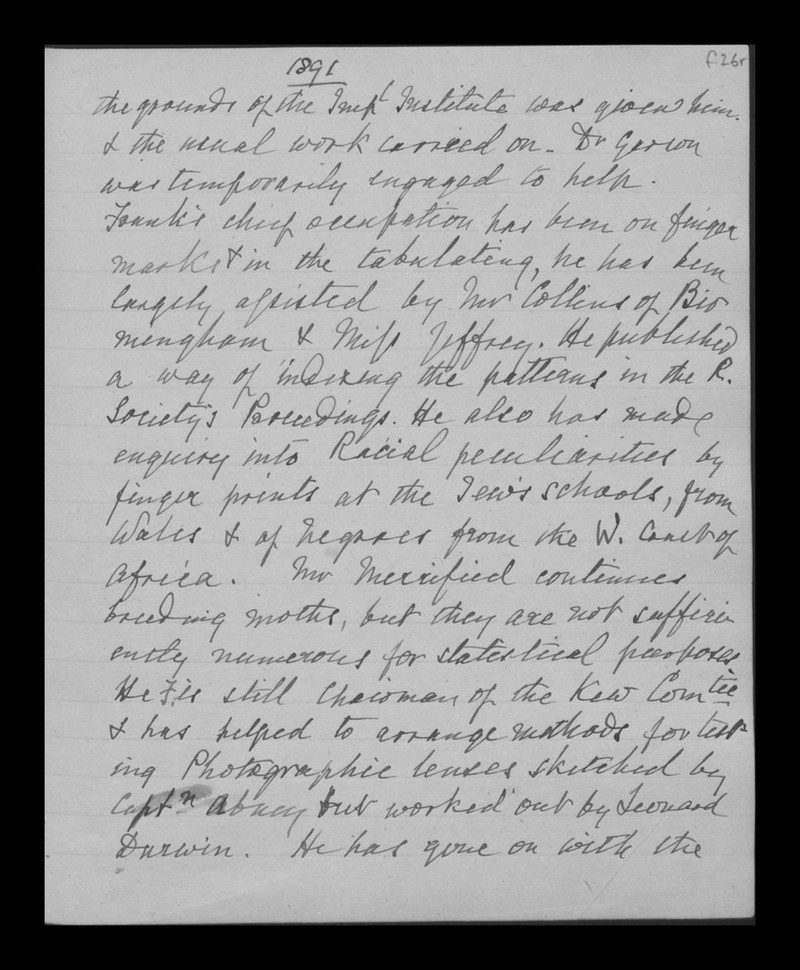 1891
f.26r
the grounds of the Imp<sup>l</sup> Institute was given him.
& the usual work carried on. Dr Gerson
was temporarily engaged to help.
Frank's chief occupation has been on finger
marks & in the tabulating, he has been
largely assisted by Mr Collins of Bir
mengham & Miss Jeffrey. He published
a way of indexing the patterns in the R.
Society's Proceedings. He also has made
enquiry into Racial peculiarities by
finger prints at the Jew's schools, from
Wales & of Negroes from the W. Coast of
Africa. Mr Merrifield continues
breeding moths, but they are not suffici
ently numerous for statistical purposes
He is still Chairman of the Kew Com<sup>tee</sup>
& has helped to arrange methods for test
ing Photographic lenses sketched by
Capt<sup>n</sup> Abney but worked out by Leonard
Darwin. He has gone on with the